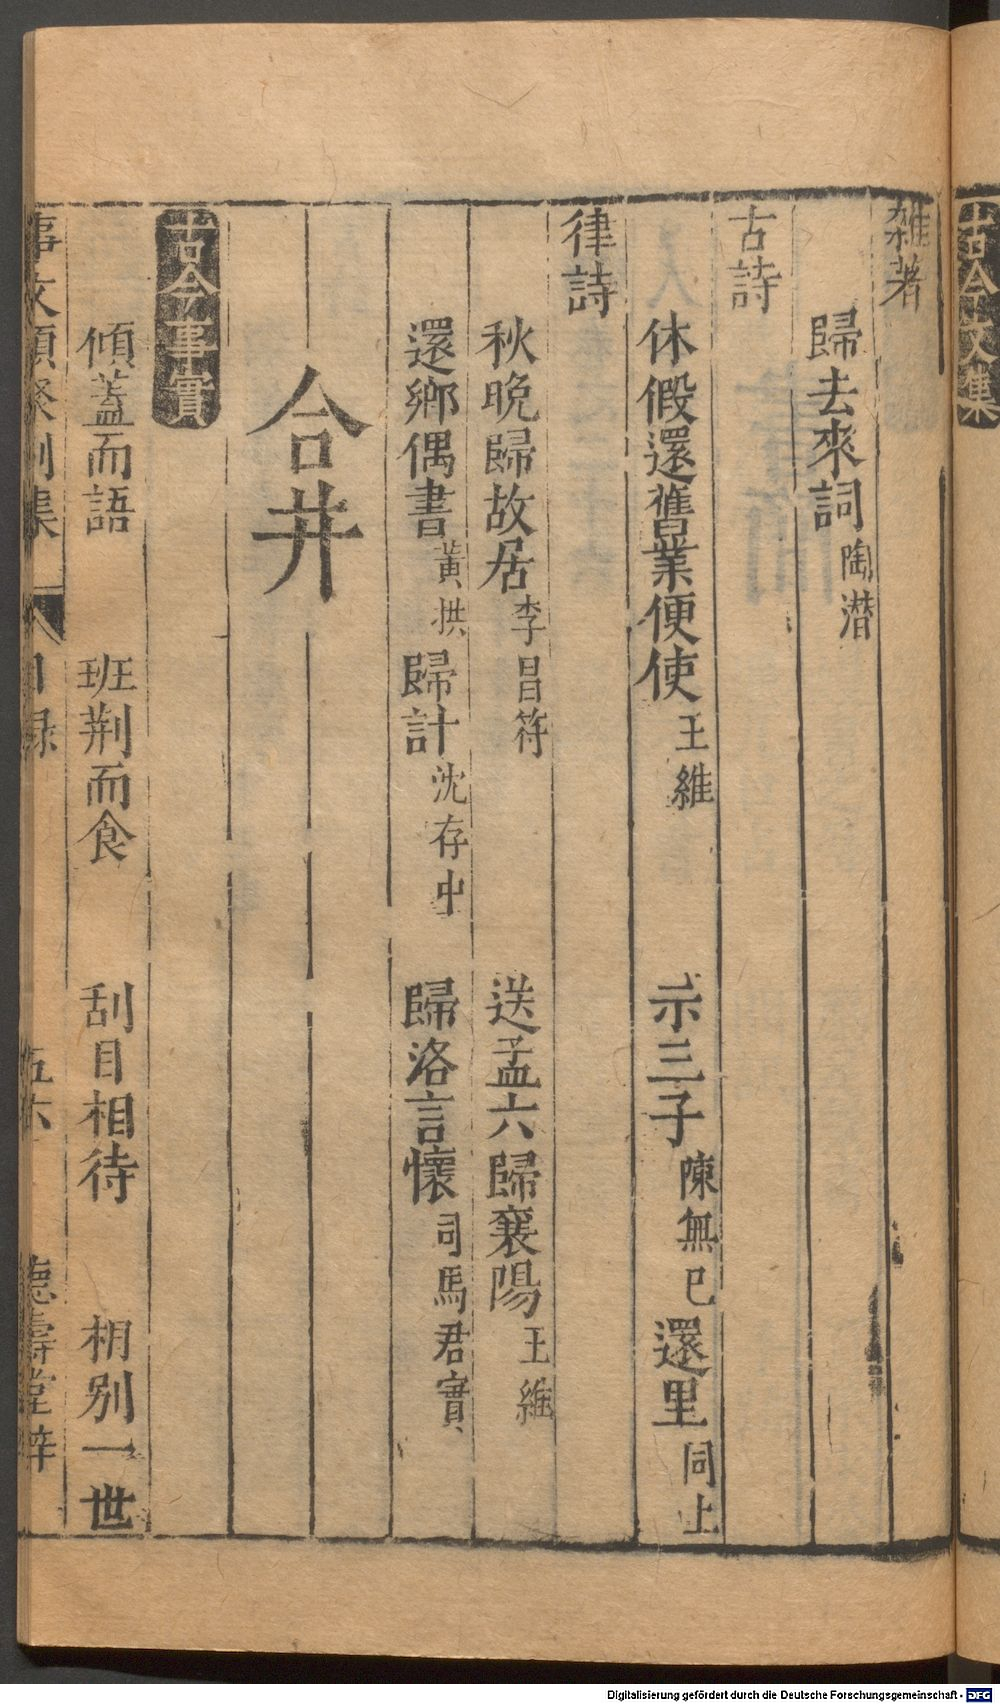 古今文集
雜著
歸去來詞 陶潜
古詩
休假還舊業便使 王維 示三子 陳無已 還里 同上
律詩
秋晚歸故居 李昌符 送孟六歸襄陽 王維
還鄉偶書 黃拱 歸計 沈存中 歸洛言懷 司馬君實
合并
古今事實
傾蓋而語 班荆而食 刮目相待 相别一世
事文類聚别集 目録 五六 德壽堂梓
Digitalisierung gefördert durch die Deutsche Forschungsgemeinschaft - DFG